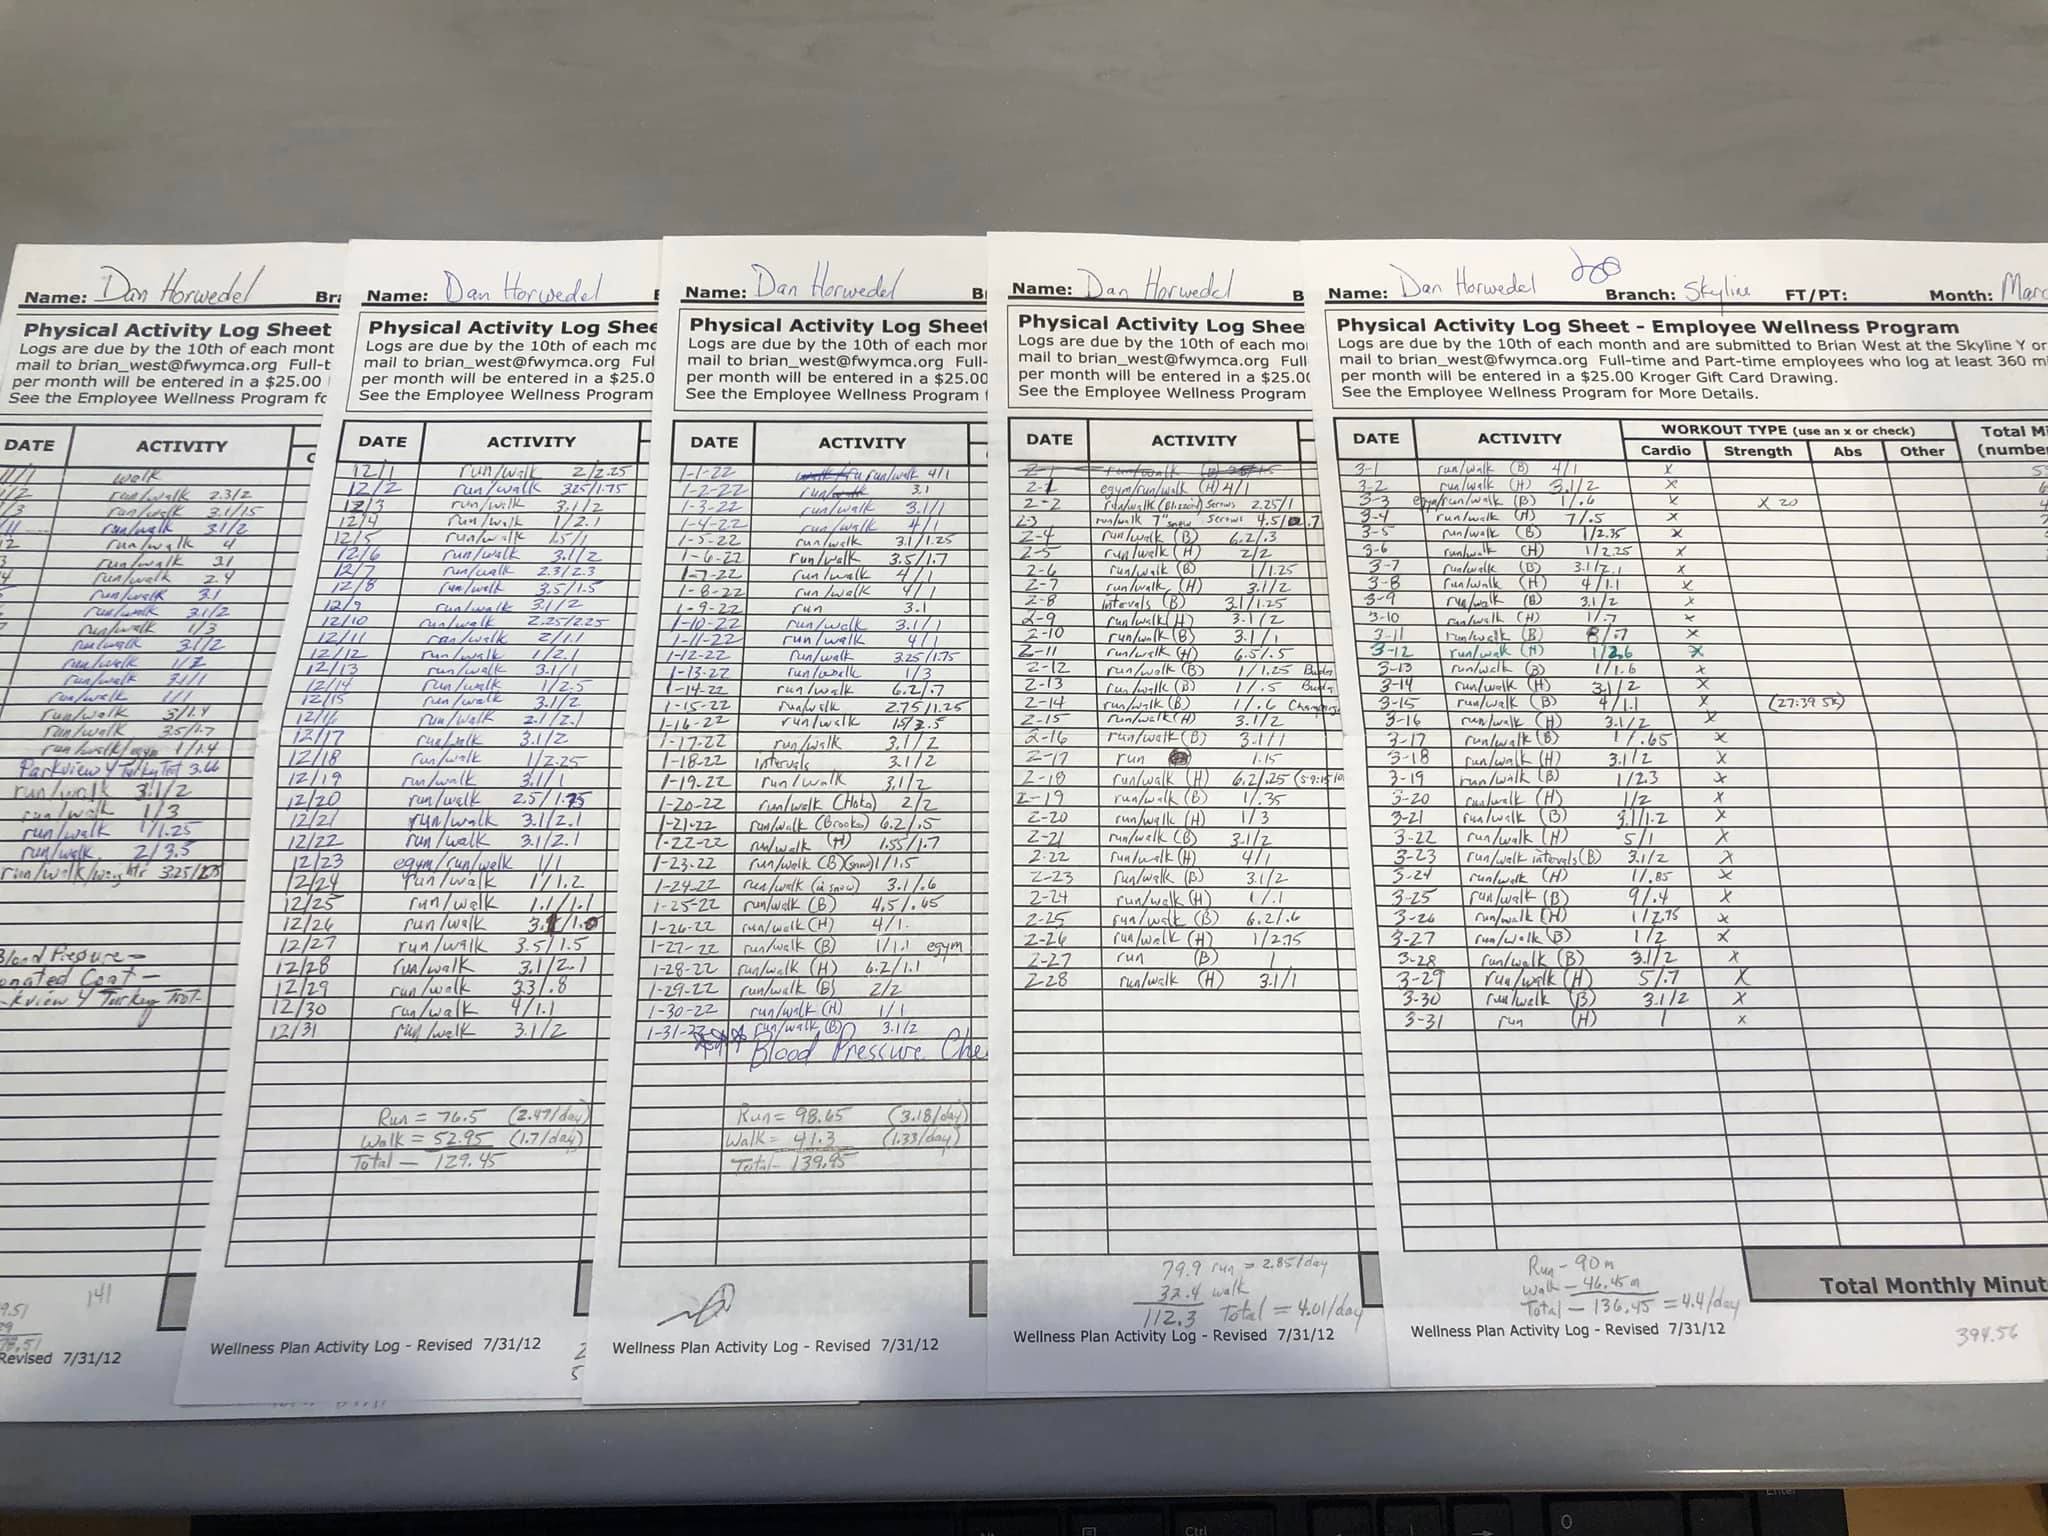 Name: Dan Horwedel Bra
Physical Activity Log Sheet
Logs are due by the 10th of each mont
mail to brian_west@fwymca.org Full-t
per month will be entered in a $25.00
See the Employee Wellness Program fo
DATE ACTIVITY
11/1 walk
run/walk 2.3/2
run/walk 3.1/1.5
run/walk 3.1/2
run/walk 4
run/walk 3.1
run/walk 2.4
run/walk 3.1
run/walk 3.1/2
run/walk 1/3
run/walk 3.1/2
run/walk 1/2
run/walk 3.1/1
run/walk 1/1
run/walk 3/1.4
run/walk 3.5/1.7
run/walk/egym 1/1.4
Parkview 4 Turkey Trot 3.66
run/walk 3.1/2
run/walk 1/3
run/walk 1/1.25
run/walk 2/3.5
run/walk/weights
Blood Pressure -
onated Coat -
kview 4 Turkey Trot -
141
Revised 7/31/12
Name: Dan Horwedel
Physical Activity Log Shee
Logs are due by the 10th of each mo
mail to brian_west@fwymca.org Ful
per month will be entered in a $25.0
See the Employee Wellness Program
DATE ACTIVITY
12/1 run/walk 2/2.25
12/2 run/walk 3.25/1.75
12/3 run/walk 3.1/2
12/4 run/walk 1/2.1
12/5 run/walk 1.5/1
12/6 run/walk 3.1/2
12/7 run/walk 2.3/2.3
12/8 run/walk 3.5/1.5
12/9 run/walk 3.1/2
12/10 run/walk 2.25/2.25
12/11 run/walk 2/1.1
12/12 run/walk 1/2.1
12/13 run/walk 3.1/1
12/14 run/walk 1/2.5
12/15 run/walk 3.1/2
12/16 run/walk 2.1/2.1
12/17 run/walk 3.1/2
12/18 run/walk 1/2.25
12/19 run/walk 3.1/1
12/20 run/walk 2.5/1.75
12/21 run/walk 3.1/2.1
12/22 run/walk 3.1/2.1
12/23 egym/run/walk 1/1
12/24 run/walk 1/1.2
12/25 run/walk 1.1/1.1
12/26 run/walk
12/27 run/walk 3.5/1.5
12/28 run/walk 3.1/2.1
12/29 run/walk 3.3/.8
12/30 run/walk 4/1.1
12/31 run/walk 3.1/2
Run = 76.5 (2.47/day)
Walk = 52.95 (1.7/day)
Total - 129.45
Wellness Plan Activity Log - Revised 7/31/12
Name: Dan Horwedel B
Physical Activity Log Sheet
Logs are due by the 10th of each mon
mail to brian_west@fwymca.org Full-
per month will be entered in a $25.00
See the Employee Wellness Program
DATE ACTIVITY
1-1-22 run/walk 4/1
1-2-22 run 3.1
1-3-22 run/walk 3.1/1
1-4-22 run/walk 4/1
1-5-22 run/walk 3.1/1.25
1-6-22 run/walk 3.5/1.7
1-7-22 run/walk 4/1
1-8-22 run/walk 4/1
1-9-22 run 3.1
1-10-22 run/walk 3.1/1
1-11-22 run/walk 4/1
1-12-22 run/walk 3.25/1.75
1-13-22 run/walk 1/3
1-14-22 run/walk 6.2/.7
1-15-22 run/walk 2.75/1.25
1-16-22 run/walk
1-17-22 run/walk 3.1/2
1-18-22 intervals 3.1/2
1-19-22 run/walk 3.1/2
1-20-22 run/walk (Hoka) 2/2
1-21-22 run/walk (Brooks) 6.2/.5
1-22-22 run/walk (H) 1.55/1.7
1-23-22 run/walk (B)(snow) 1/1.5
1-24-22 run/walk (in snow) 3.1/.6
1-25-22 run/walk (B) 4.5/.65
1-26-22 run/walk (H) 4/1
1-27-22 run/walk (B) 1/1.1 egym
1-28-22 run/walk (H) 6.2/1.1
1-29-22 run/walk (B) 2/2
1-30-22 run/walk (H) 1/1
1-31-22 run/walk (B) 3.1/2
Blood Pressure Che
Run = 98.65 (3.18/day)
Walk = 41.3 (1.33/day)
Total - 139.95
Wellness Plan Activity Log - Revised 7/31/12
Name: Dan Horwedel B
Physical Activity Log Shee
Logs are due by the 10th of each mo
mail to brian_west@fwymca.org Full
per month will be entered in a $25.0
See the Employee Wellness Program
DATE ACTIVITY
2-1 run/walk (B)
2-1 egym/run/walk (H) 4/1
2-2 run/walk (Blizzard) Screws 2.25/1
2-3 run/walk 7" snow Screws 4.5/.7
2-4 run/walk (B) 6.2/.3
2-5 run/walk (H) 2/2
2-6 run/walk (B) 1/1.25
2-7 run/walk (H) 3.1/2
2-8 intervals (B) 3.1/1.25
2-9 run/walk (H) 3.1/2
2-10 run/walk (B) 3.1/1
2-11 run/walk (H) 6.5/.5
2-12 run/walk (B) 1/1.25
2-13 run/walk (B) 1/.5
2-14 run/walk (B) 1/.6
2-15 run/walk (H) 3.1/2
2-16 run/walk (B) 3.1/1
2-17 run 1.15
2-18 run/walk (H) 6.2/.25
2-19 run/walk (B) 1/.35
2-20 run/walk (H) 1/3
2-21 run/walk (B) 3.1/2
2-22 run/walk (H) 4/1
2-23 run/walk (B) 3.1/2
2-24 run/walk (H) 1/.1
2-25 run/walk (B) 6.2/.6
2-26 run/walk (H) 1/2.75
2-27 run (B) 1
2-28 run/walk (H) 3.1/1
79.9 run = 2.85/day
32.4 walk
112.3 Total = 4.01/day
Wellness Plan Activity Log - Revised 7/31/12
Name: Dan Horwedel Branch: Skyline FT/PT: Month: Marc
Physical Activity Log Sheet - Employee Wellness Program
Logs are due by the 10th of each month and are submitted to Brian West at the Skyline Y or
mail to brian_west@fwymca.org Full-time and Part-time employees who log at least 360 mi
per month will be entered in a $25.00 Kroger Gift Card Drawing.
See the Employee Wellness Program for More Details.
DATE ACTIVITY WORKOUT TYPE (use an x or check) Total Mi
Cardio Strength Abs Other (number
3-1 run/walk (B) 4/1 x
3-2 run/walk (H) 3.1/2 x
3-3 egym/run/walk (B) 1/.6 x x 20
3-4 run/walk (H) 7/.5 x
3-5 run/walk (B) 1/2.35 x
3-6 run/walk (H) 1/2.25 x
3-7 run/walk (B) 3.1/2.1 x
3-8 run/walk (H) 4/1.1 x
3-9 run/walk (B) 3.1/2 x
3-10 run/walk (H) 1/.7 x
3-11 run/walk (B) 8/.7 x
3-12 run/walk (H) 1/2.6 x
3-13 run/walk (B) 1/1.6 x
3-14 run/walk (H) 3.1/2 x
3-15 run/walk (B) 4/1.1 x (27:39 5K)
3-16 run/walk (H) 3.1/2 x
3-17 run/walk (B) 1/.65 x
3-18 run/walk (H) 3.1/2 x
3-19 run/walk (B) 1/2.3 x
3-20 run/walk (H) 1/2 x
3-21 run/walk (B) 3.1/1.2 x
3-22 run/walk (H) 5/1 x
3-23 run/walk intervals (B) 3.1/2 x
3-24 run/walk (H) 1/.85 x
3-25 run/walk (B) 9/.4 x
3-26 run/walk (H) 1/2.75 x
3-27 run/walk (B) 1/2 x
3-28 run/walk (B) 3.1/2 x
3-29 run/walk (H) 5/.7 x
3-30 run/walk (B) 3.1/2 x
3-31 run (H) 1 x
Run - 90m
Walk - 46.45m
Total - 136.45 = 4.4/day
Total Monthly Minut
Wellness Plan Activity Log - Revised 7/31/12
394.56
Ctrl
Enter